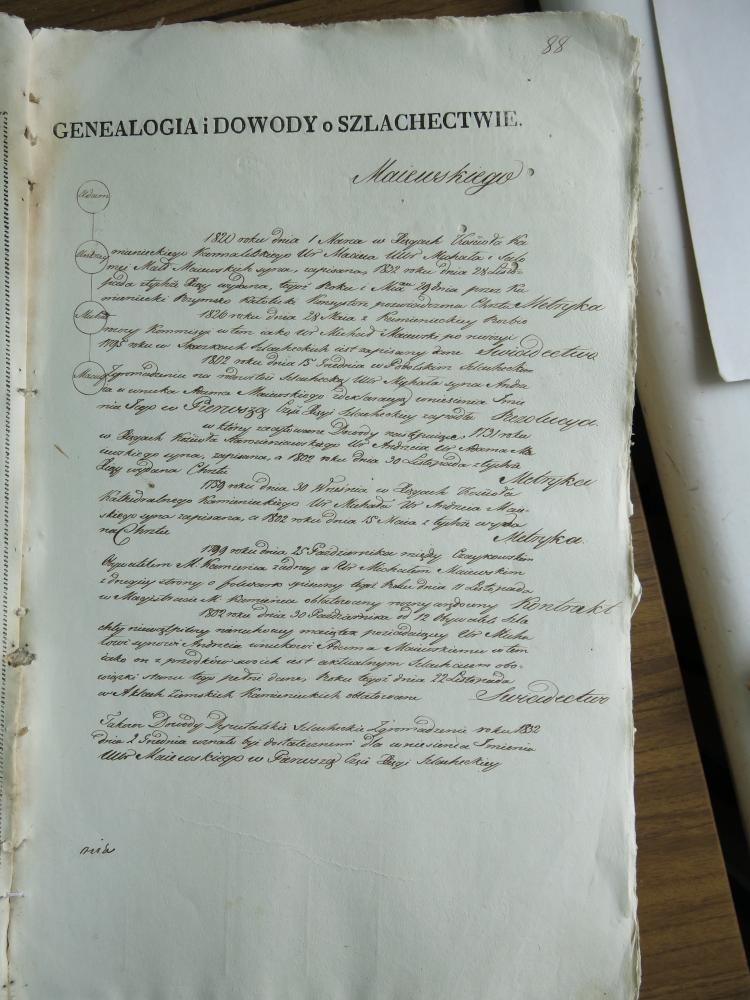 88
GENEALOGIA i DOWODY o SZLACHECTWIE.
Maiewskiego
Adam
Andrzey
Michał
Maciey
1820 roku dnia 1 Marca w Xięgach Kościoła Ka
mienieckiego Karmelitskiego Ur Macieia Ur Michała i Salo
mei Małż Maiewskich syna, zapisana, 1832 roku dnia 28 Listo
pada z tychże Xiąg wydana, tegoż Roku i Mca 29 dnia przez Ka
mieniecki Rzymsko Katolicki Konsystorz poświadczona Chrztu Metryka
1820 roku dnia 28 Maia z Kamienieckiey
Kommissyi w tem iako Ur Michał Maiewski po
1795 roku w Skazkach Szlacheckich iest zapisany dane Swiadectwo
1802 roku dnia 15 Grudnia w Podolskim Szlacheckim
Zgromadzeniu na rodowitość Szlachecką Ur Michała syna Andrze
ia a wnuka Adama Maiewskiego wniesienia Imie
nia Jego w Pierwszą Część Xięgi Szlacheckiey zapadła Rezolucya
w któréy zacytowane Dowody następuiące, 1731 roku
w Xięgach Kościoła Ur Andrzeia Ur Adama Ma
iewskiego syna, zapisana, a 1802 roku dnia 30 Listopada z tychże
Xiąg wydana Chrztu Metryka
1759 roku dnia 30 Września w Xięgach Kościoła
Katedralnego Kamienieckiego Ur Michała Ur Andrzeia Maiew
skiego syna zapisana, a 1802 roku dnia 15 Maia z tychże wyda
na Chrztu Metryka
1799 roku dnia 25 Października między Czaykowskim
Obywatelem M. Kamieńca z iedney a Ur Michałem Maiewskim
z drugiey strony o folwark spisany tegoż Roku dnia 11 Listopada
w Magistracie M. Kamieńca oblatowany Kontrakt
1802 roku dnia 30 Października od 12 Obywateli Szla
chty niewątpliwey maiątek posiadaiącey Ur Micha
łowi synowi Andrzeia wnukowi Adama Maiewskiemu w tem
iako on z przodków swoich iest aktualnym Szlachcicem obo
wiązki stanu tego pełni dane, Roku tegoż dnia 22 Listopada
w Aktach Ziemskich Kamienieckich oblatowane Swiadectwo
Takowe Dowody Deputatskie Szlacheckie Zgromadzenie roku 1832
dnia 2 Grudnia uznało być dostatecznemi dla wniesienia Imienia
Ur Maiewskiego w Pierwszą Część Xięgi Szlacheckiey